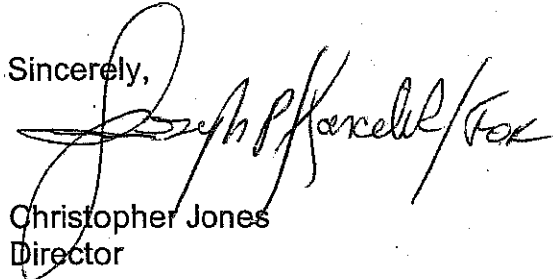 Sincerely,
Joseph P / For
Christopher Jones
Director